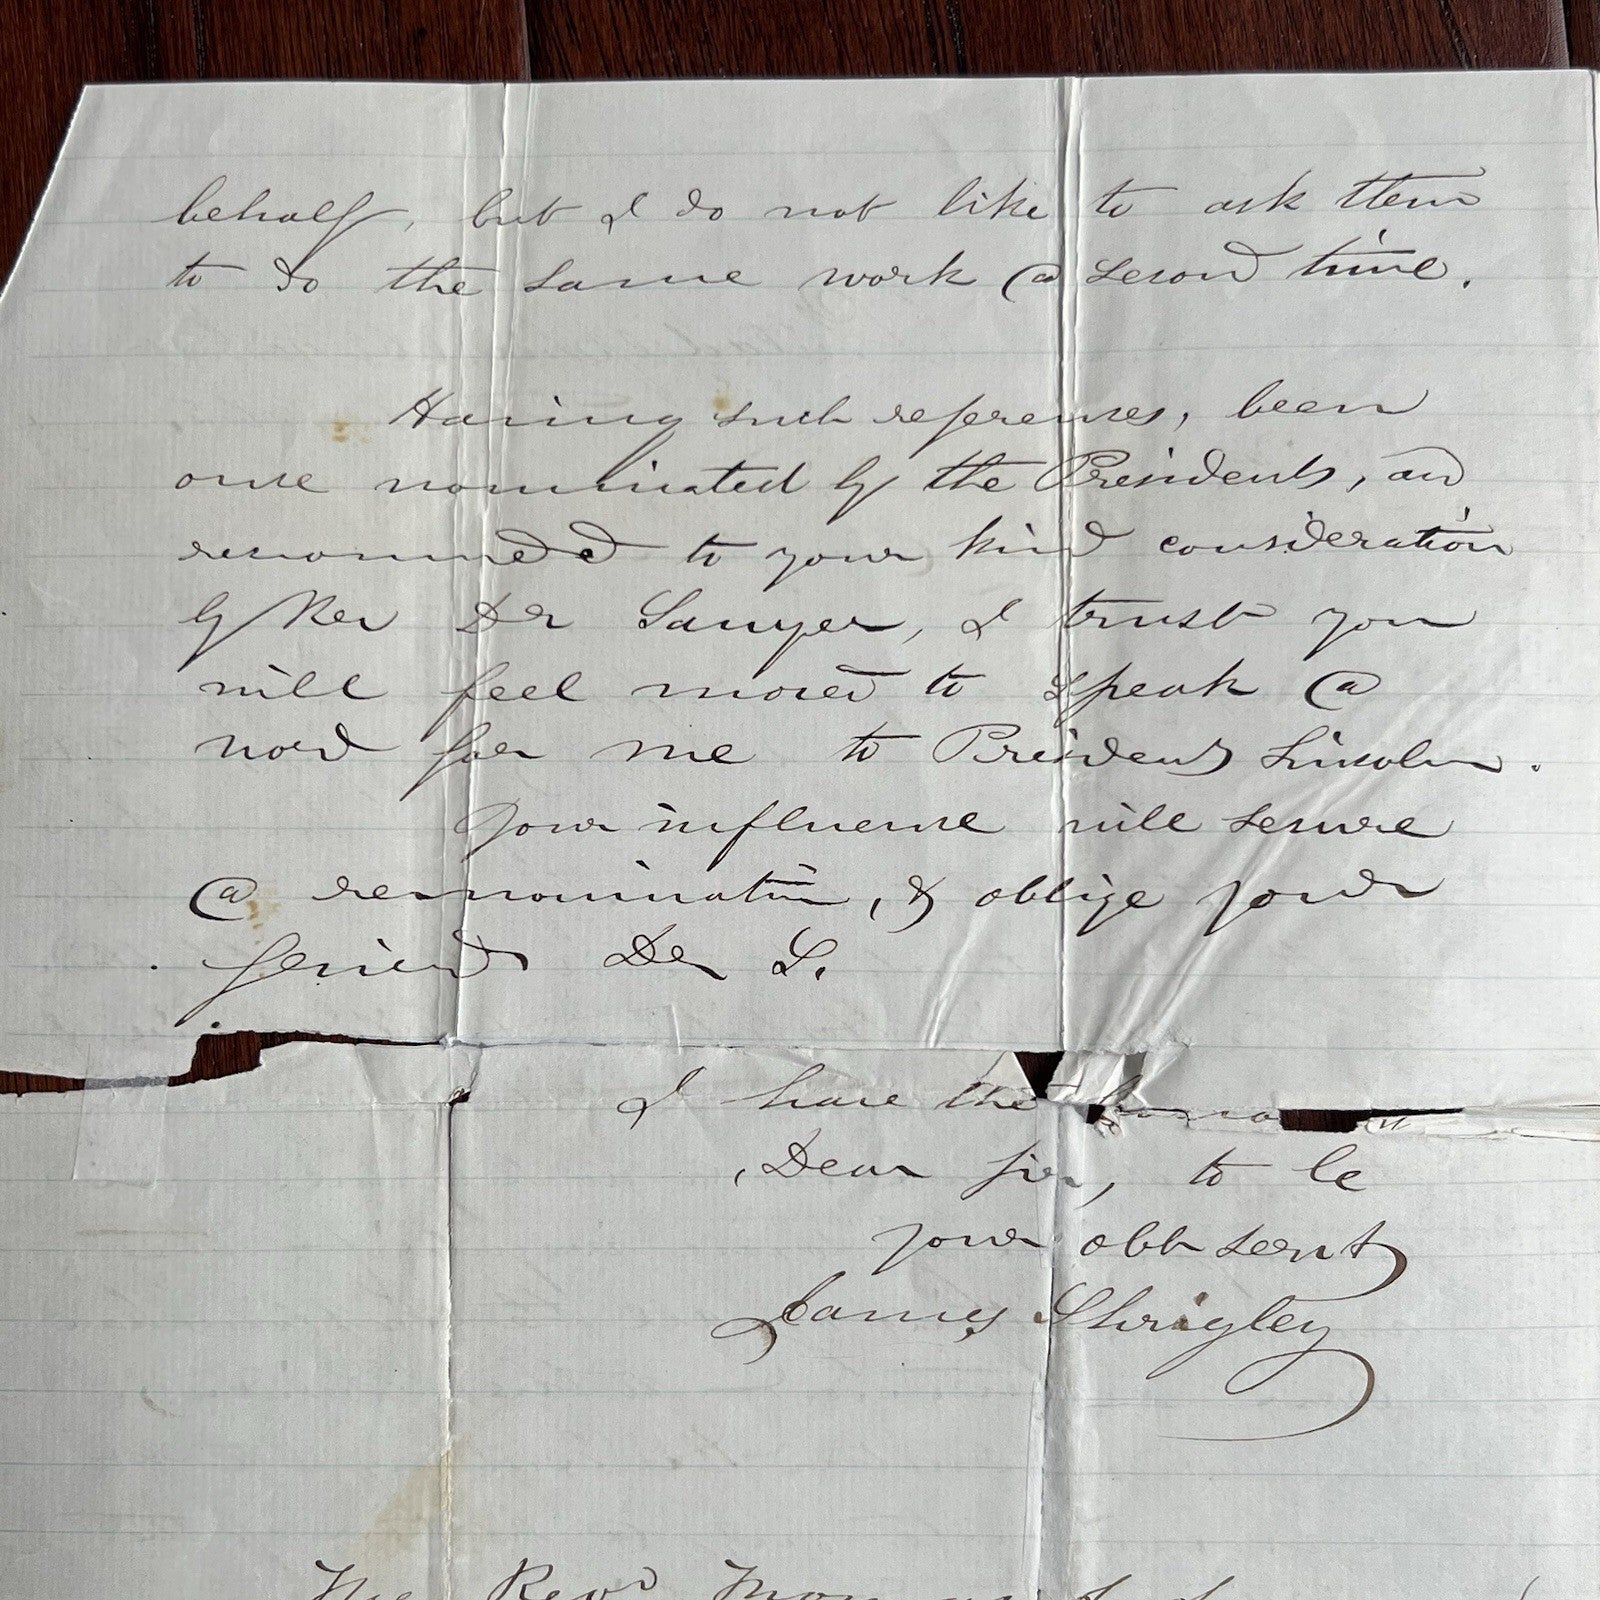 behalf, but I do not like to ask them
to do the same work @ second time.
Having such references, been
once nominated by the Presidents, and
recommeded to your kind consideration
by Rev Dr Sawyer, I trust you
will feel moved to speak @
word for me to President Lincoln.
Your influence will secure
@ renomination, & oblige your
friend Dr S.
I have the honor
Dear Sir, to be
your obt servt
James Shrigley
The Revd